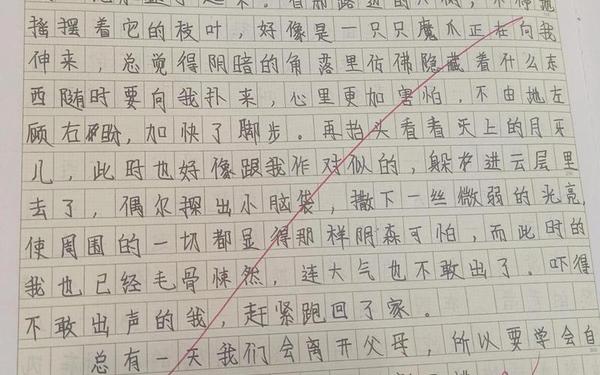 摇摆着它的枝叶，好像是一只只魔爪正在向我
伸来，总觉得阴暗的角落里仿佛隐藏着什么东
西随时要向我扑来，心里更加害怕，不由地左
顾右盼，加快了脚步。再抬头看看天上的月牙
儿，此时也好像跟我作对似的，躲进云层里
去了，偶尔探出小脑袋，撒下一丝微弱的光亮，
使周围的一切都显得那样阴森可怕，而此时的
我也已经毛骨悚然，连大气也不敢出了。吓得
不敢出声的我，赶紧跑回了家。
总有一天我们会离开父母，所以要学会自